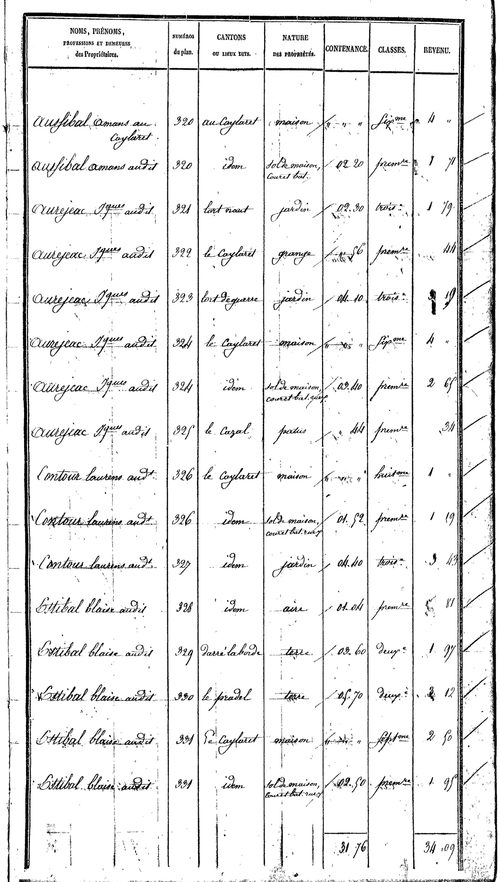 NOMS, PRÉNOMS, PROFESSIONS ET DEMEURES des Propriétaires. NUMÉROS du plan. CANTONS OU LIEUX DITS. NATURE DES PROPRIÉTÉS. CONTENANCE. CLASSES. REVENU.
Aussibal amans au Caylaret 320 au Caylaret maison " " " sipme 4 "
Aussibal amans audit 320 idem sol de maison, cour et bat. 02 20 premre 1 71
Aurejeac Jques audit 321 lort naut jardin 02 30 trois. 1 79
Aurejeac Jques audit 322 le Caylaret grange " 56 premre 44
Aurejeac Jques audit 323 lort deguerre jardin 04 10 trois. 19
Aurejeac Jques audit 324 le Caylaret maison " " " sipme 4 "
Aurejeac Jques audit 324 idem sol de maison, cour et bat. rur. 03 40 premre 2 65
Aurejeac Jques audit 325 le Cazal patus " 44 premre 34
Contour laurens audt 326 le Caylaret maison " " " huitme 1 "
Contour laurens audt 326 idem sol de maison, cour et bat. rur. 01 52 premre 1 19
Contour laurens audt 327 idem jardin 04 40 trois. 3 43
Estibal blaise audit 328 idem aire 01 04 premre 81
Estibal blaise audit 329 darré laborde terre 03 60 deux. 1 97
Estibal blaise audit 330 le pradel terre 05 70 deux. 3 12
Estibal blaise audit 331 Le Caylaret maison " " " septme 2 50
Estibal blaise audit 331 idem sol de maison, cour et bat. rur. 02 50 premre 1 95
31 76 34 09